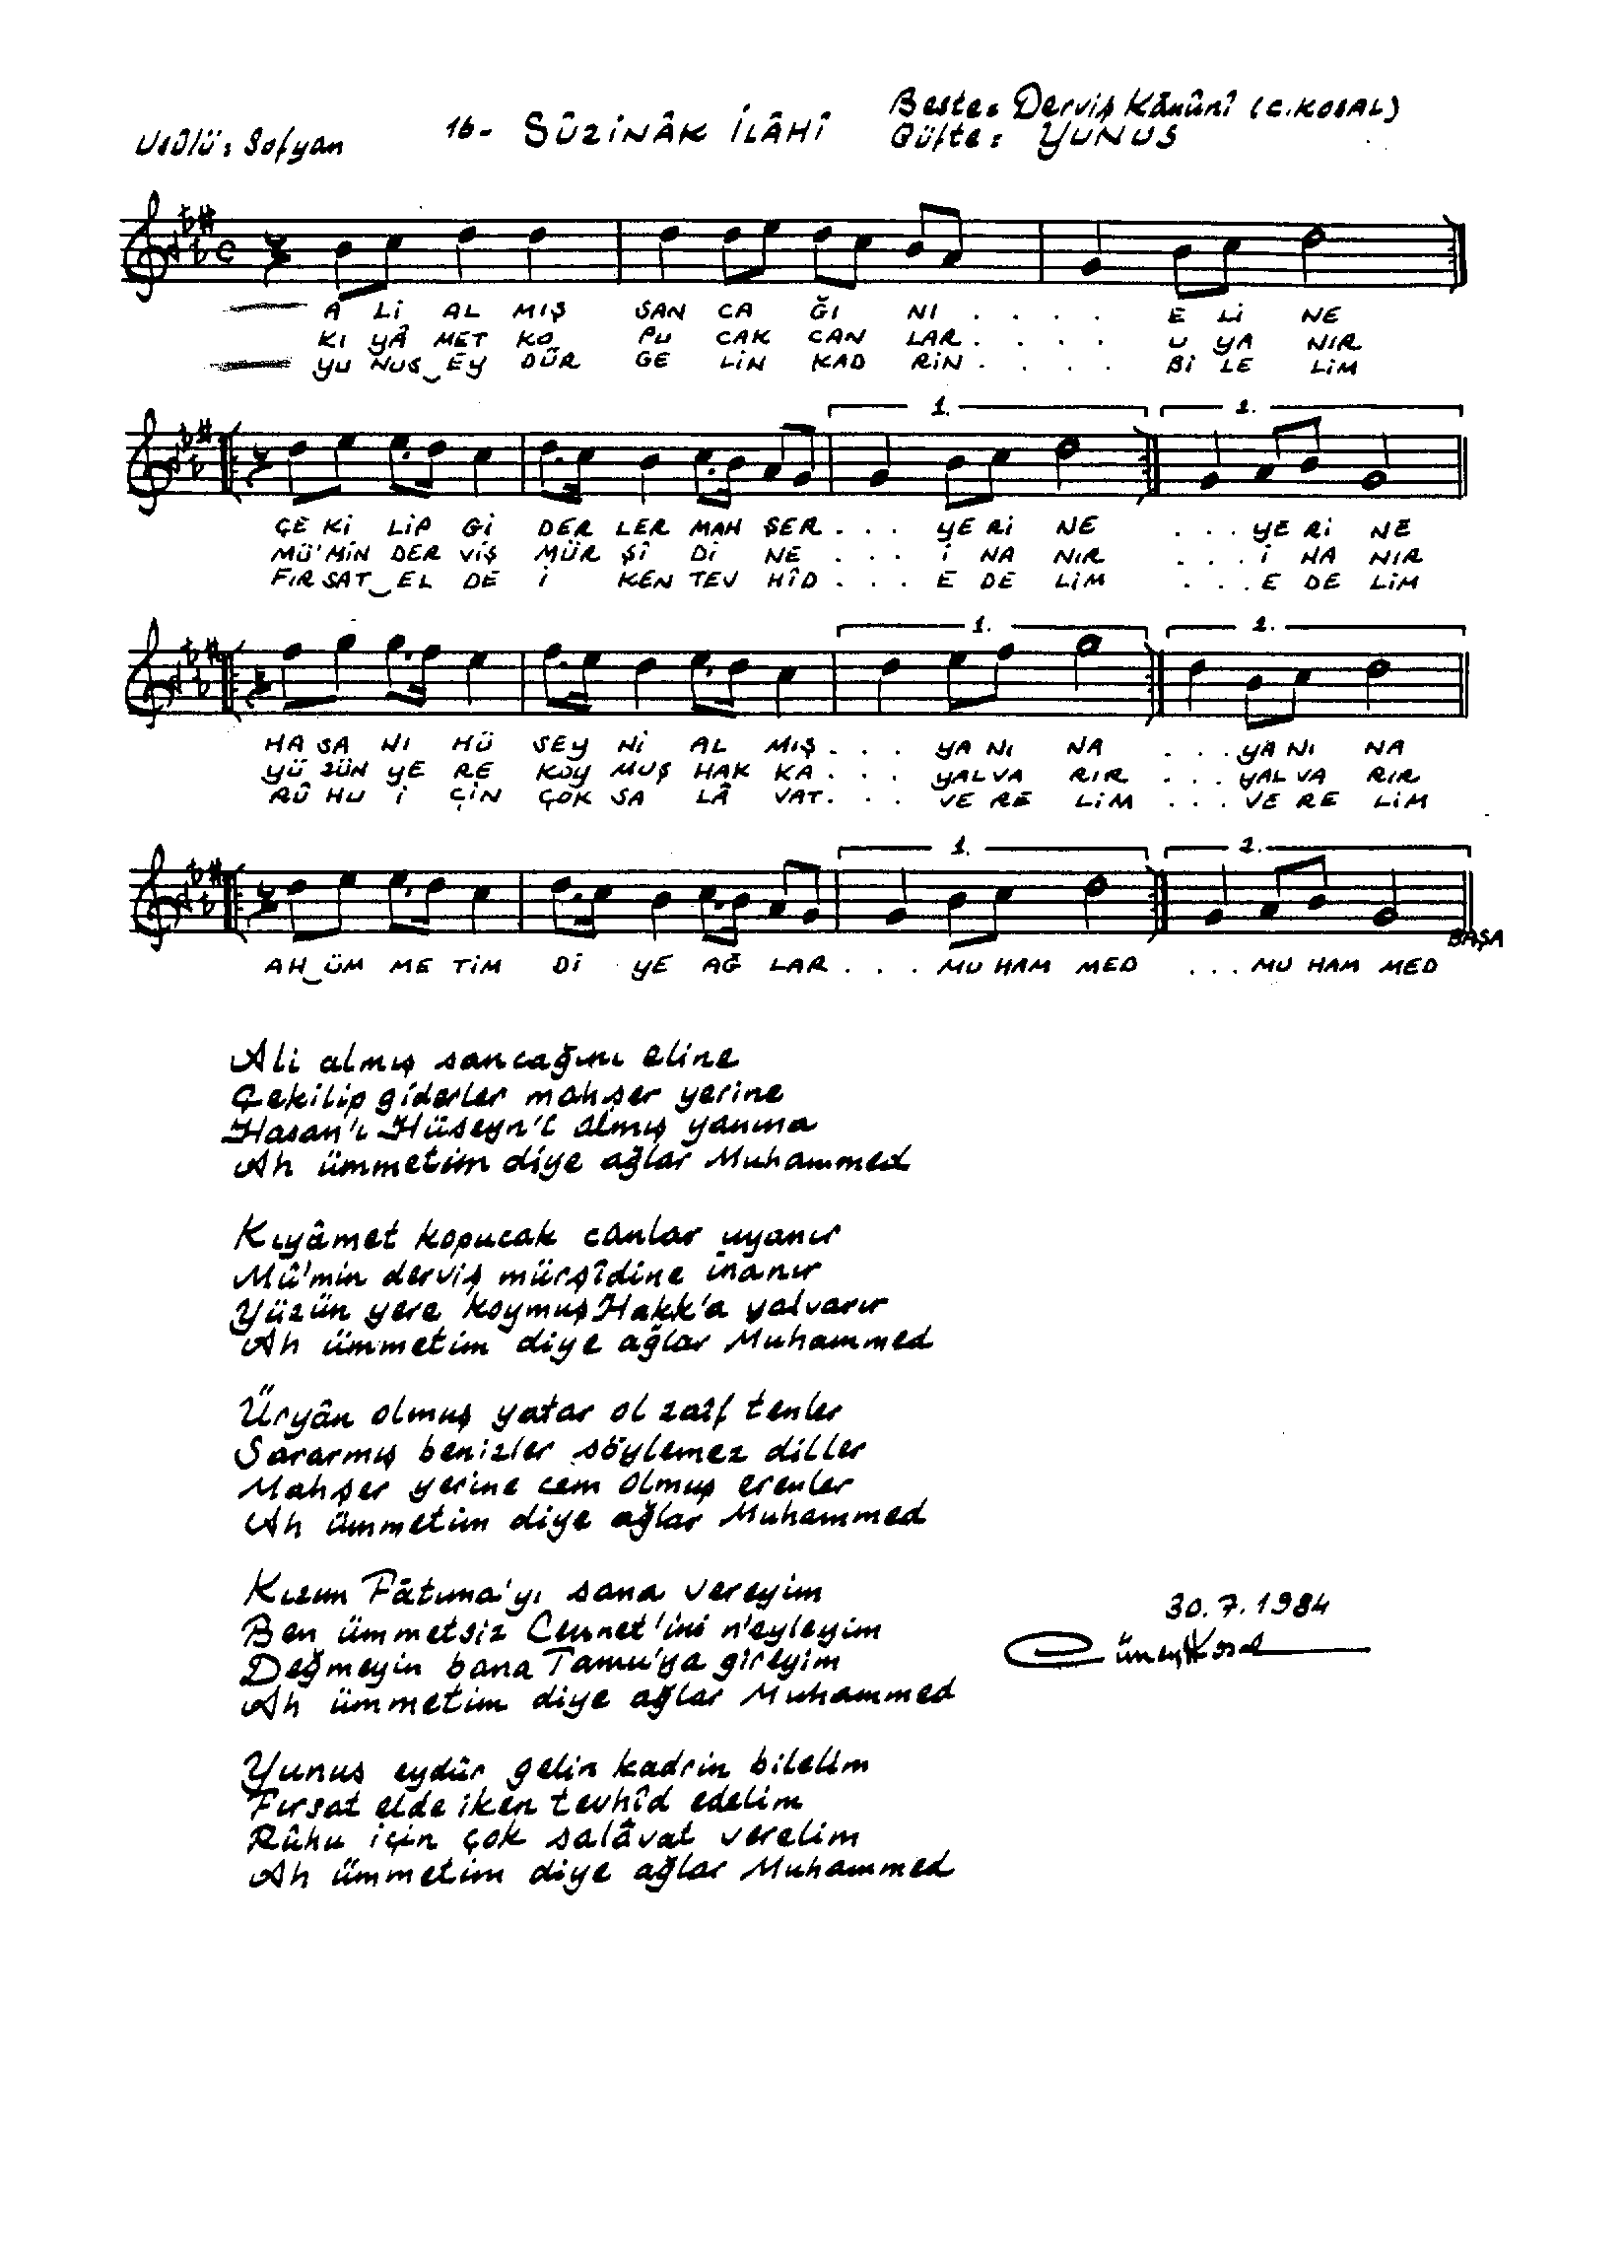 Usûlü: Sofyan
16- SÛZİNÂK İLÂHÎ
Beste: Derviş Kânûnî (C. KOSAL)
Güfte: YUNUS
A Lİ AL MIŞ SAN CA ĞI NI . . . . E Lİ NE
KI YÂ MET KO PU CAK CAN LAR . . . . U YA NIR
YU NUS‿EY DÜR GE LİN KAD RİN . . . . Bİ LE LİM
1. 2.
ÇE Kİ LİP Gİ DER LER MAH ŞER . . . YE Rİ NE . . . YE Rİ NE
MÜ'MİN DER VİŞ MÜR ŞÎ Dİ NE . . . İ NA NIR . . . İ NA NIR
FIR SAT‿EL DE İ KEN TEV HÎD . . . E DE LİM . . . E DE LİM
1. 2.
HA SA NI HÜ SEY Nİ AL MIŞ . . . YA NI NA . . . YA NI NA
YÜ ZÜN YE RE KOY MUŞ HAK KA . . . YAL VA RIR . . . YAL VA RIR
RÛ HU İ ÇİN ÇOK SA LÂ VAT . . . VE RE LİM . . . VE RE LİM
1. 2.
BAŞA
AH‿ÜM ME TİM Dİ YE AĞ LAR . . . MU HAM MED . . . MU HAM MED
Ali almış sancağını eline
Çekilip giderler mahşer yerine
Hasan'ı Hüseyn'i almış yanına
Ah ümmetim diye ağlar Muhammed
Kıyâmet kopucak canlar uyanır
Mü'min derviş mürşîdine inanır
Yüzün yere koymuş Hakk'a yalvarır
Ah ümmetim diye ağlar Muhammed
Üryân olmuş yatar ol zaîf tenler
Sararmış benizler söylemez diller
Mahşer yerine cem olmuş erenler
Ah ümmetim diye ağlar Muhammed
Kızım Fâtıma'yı sana vereyim
Ben ümmetsiz Cennet'ini n'eyleyim
Değmeyin bana Tamu'ya gireyim
Ah ümmetim diye ağlar Muhammed
30.7.1984
Cüneyt Kosal
Yunus eydür gelin kadrin bilelim
Fırsat elde iken tevhîd edelim
Rûhu için çok salâvat verelim
Ah ümmetim diye ağlar Muhammed